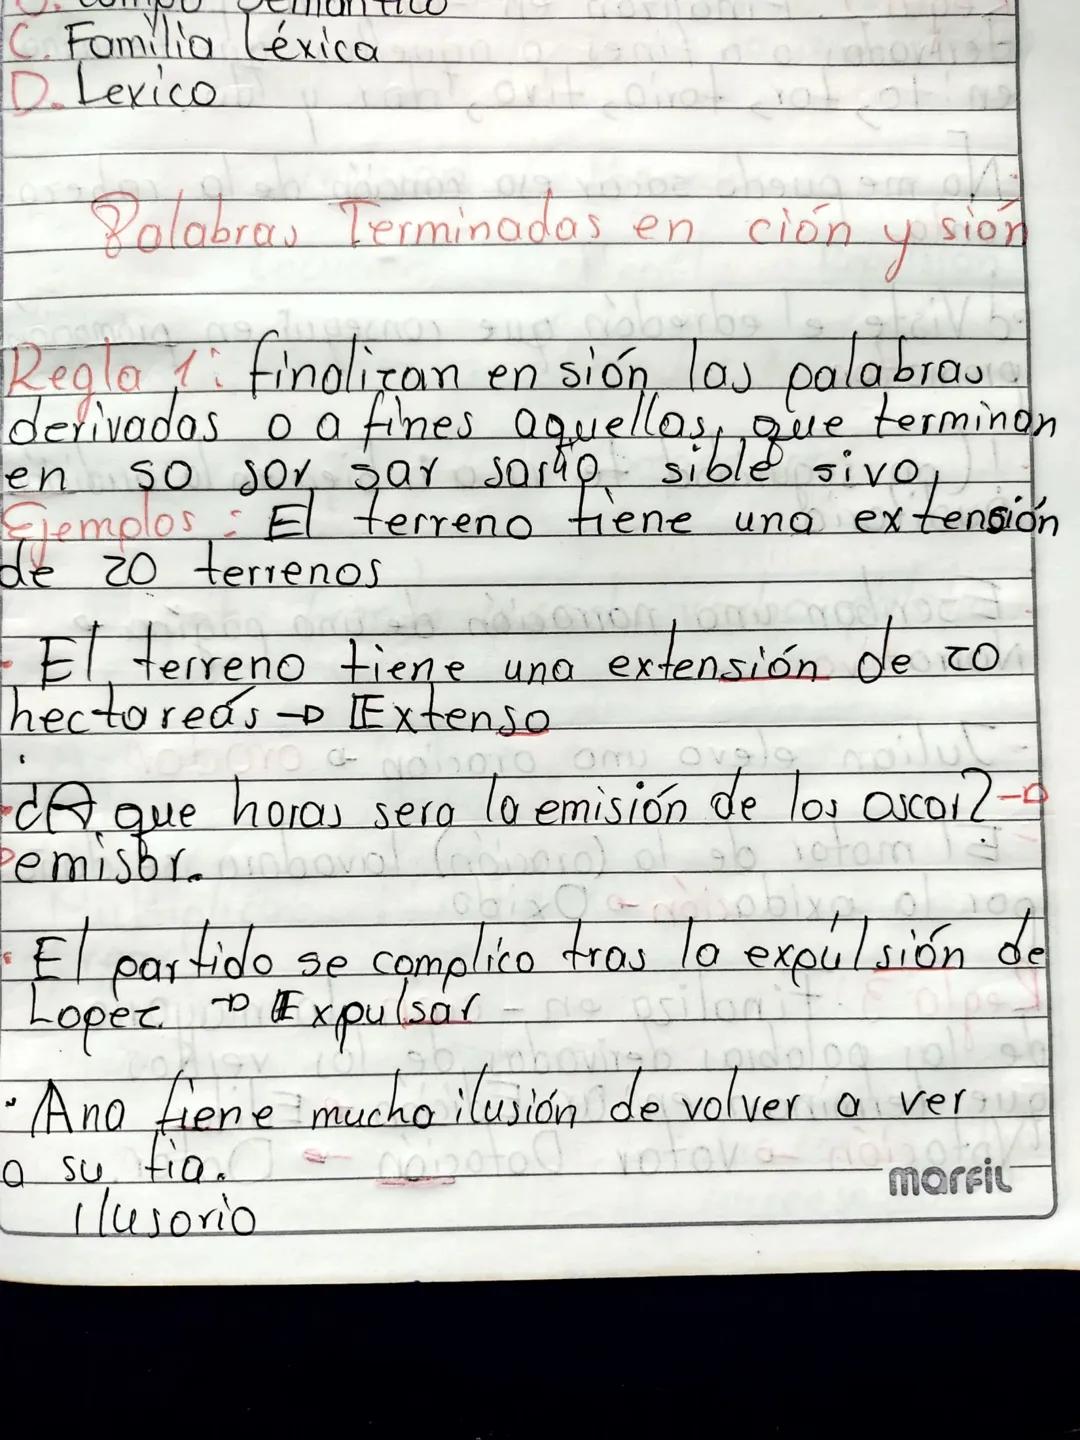 Semántico
C. Familia Léxica
D. Lexico
Palabras Terminadas en ción y sión
Regla 1: finalizan en sión las palabras
derivadas o a fines aquellas, que terminan
en so sor sar sorio sible sivo,
Ejemplos: El terreno tiene una extensión
de 20 terrenos
- El terreno tiene una extensión de 20
hectareás → Extenso
- ¿A que horas sera la emisión de los oscar? →
emisor.
- El partido se complico tras la expulsión de
Lopez → Expulsar
- Ana tiene mucha ilusión de volver a ver
a su tia.
Ilusorio
marfil